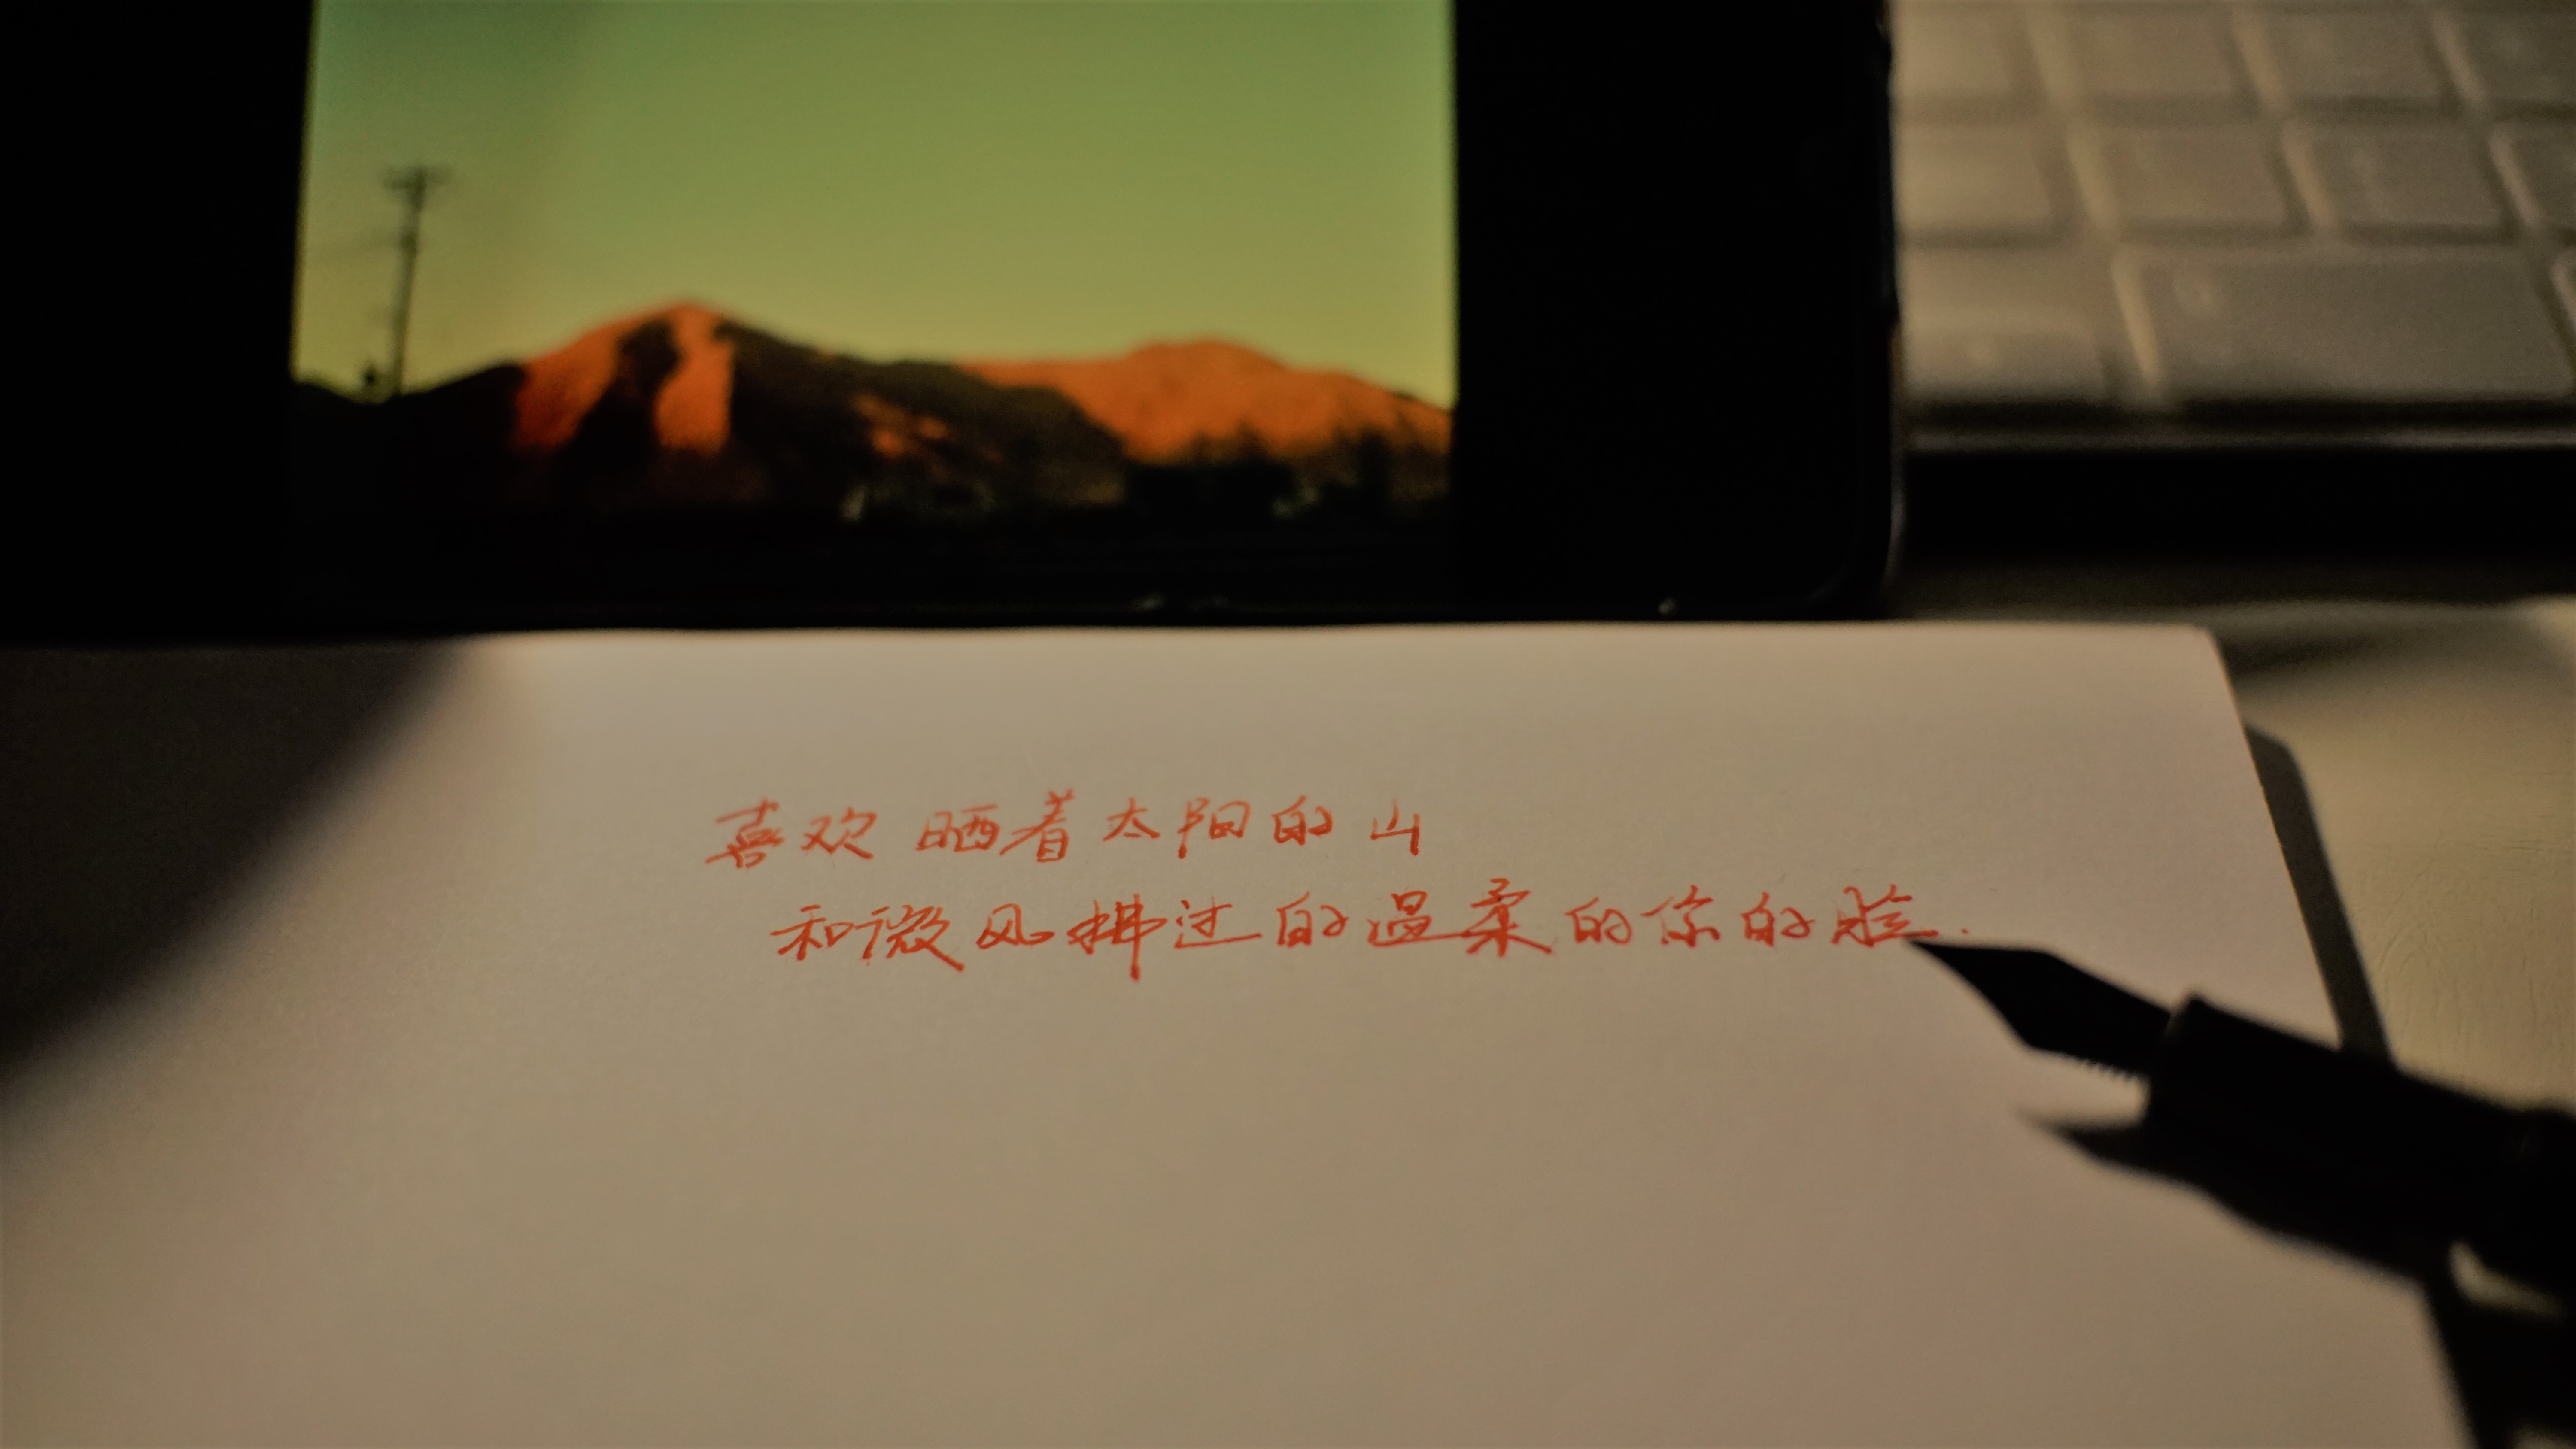 喜欢 晒着太阳的山
和微风拂过的温柔的你的脸.